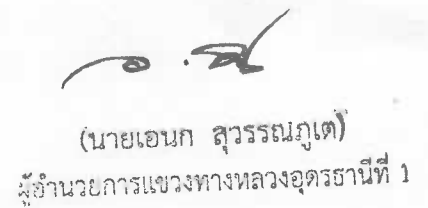 (นายเอนก สุวรรณภูเต)
ผู้อำนวยการแขวงทางหลวงอุดรธานีที่ 1